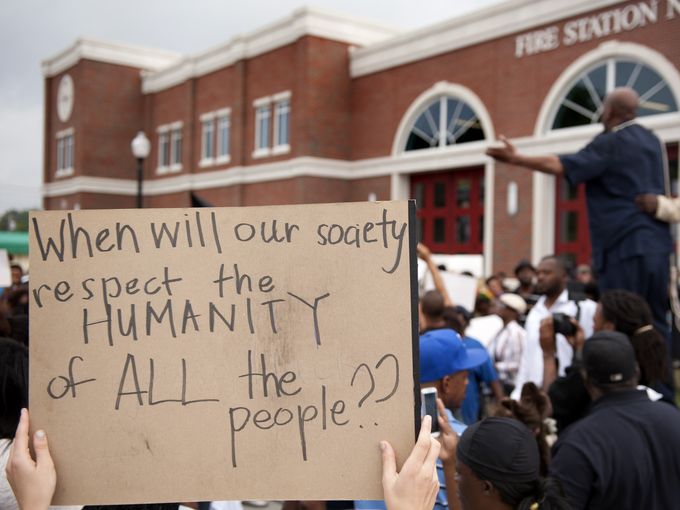 FIRE STATION N
When will our society
respect the
HUMANITY
of ALL the
people??